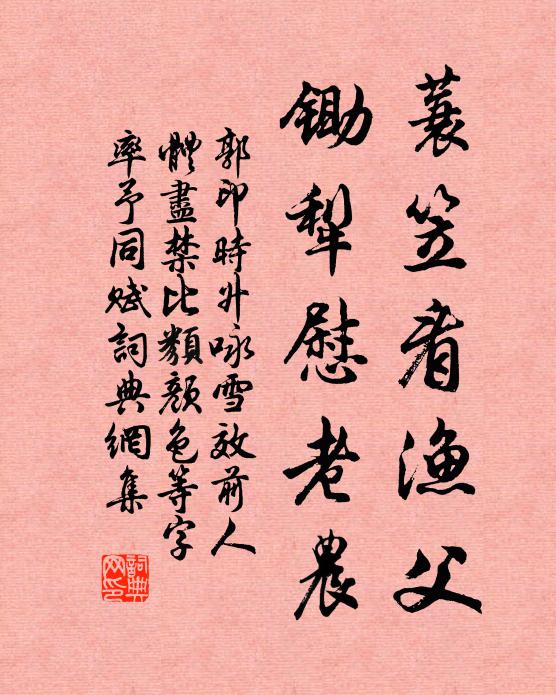 蓑笠看漁父
鋤犁慰老農
郭印時升咏雪效前人
體盡禁比類顏色等字
率予同賦詞典網集
詞典网印